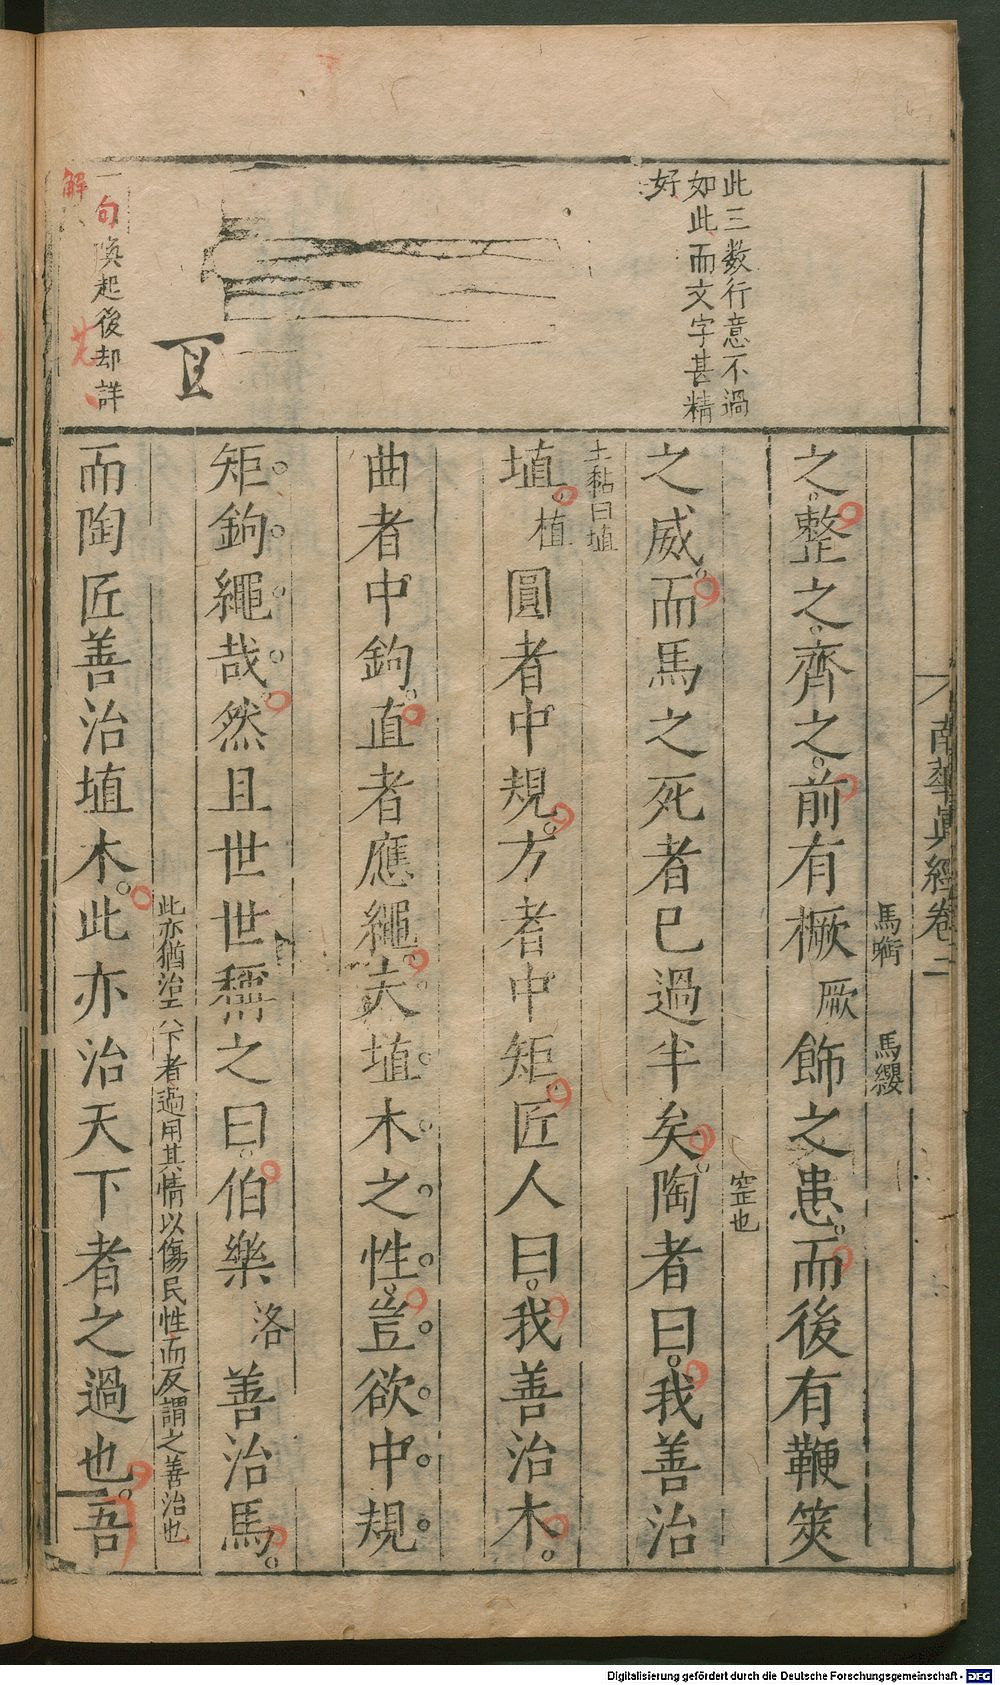 南華眞經卷二
此三数行意不過
如此而文字甚精
好
馬嚼 馬纓
之整之齊之前有橛厥飾之患而後有鞭筴
窑也
之威而馬之死者已過半矣陶者曰我善治
土黏曰埴
埴植圓者中規方者中矩匠人曰我善治木
曲者中鉤直者應繩夫埴木之性豈欲中規
矩鉤繩哉然且世世稱之曰伯樂洛善治馬
此亦猶治天下者過用其情以傷民性而反謂之善治也
而陶匠善治埴木此亦治天下者之過也吾
且
一句喚起後却詳
解
Digitalisierung gefördert durch die Deutsche Forschungsgemeinschaft - DFG